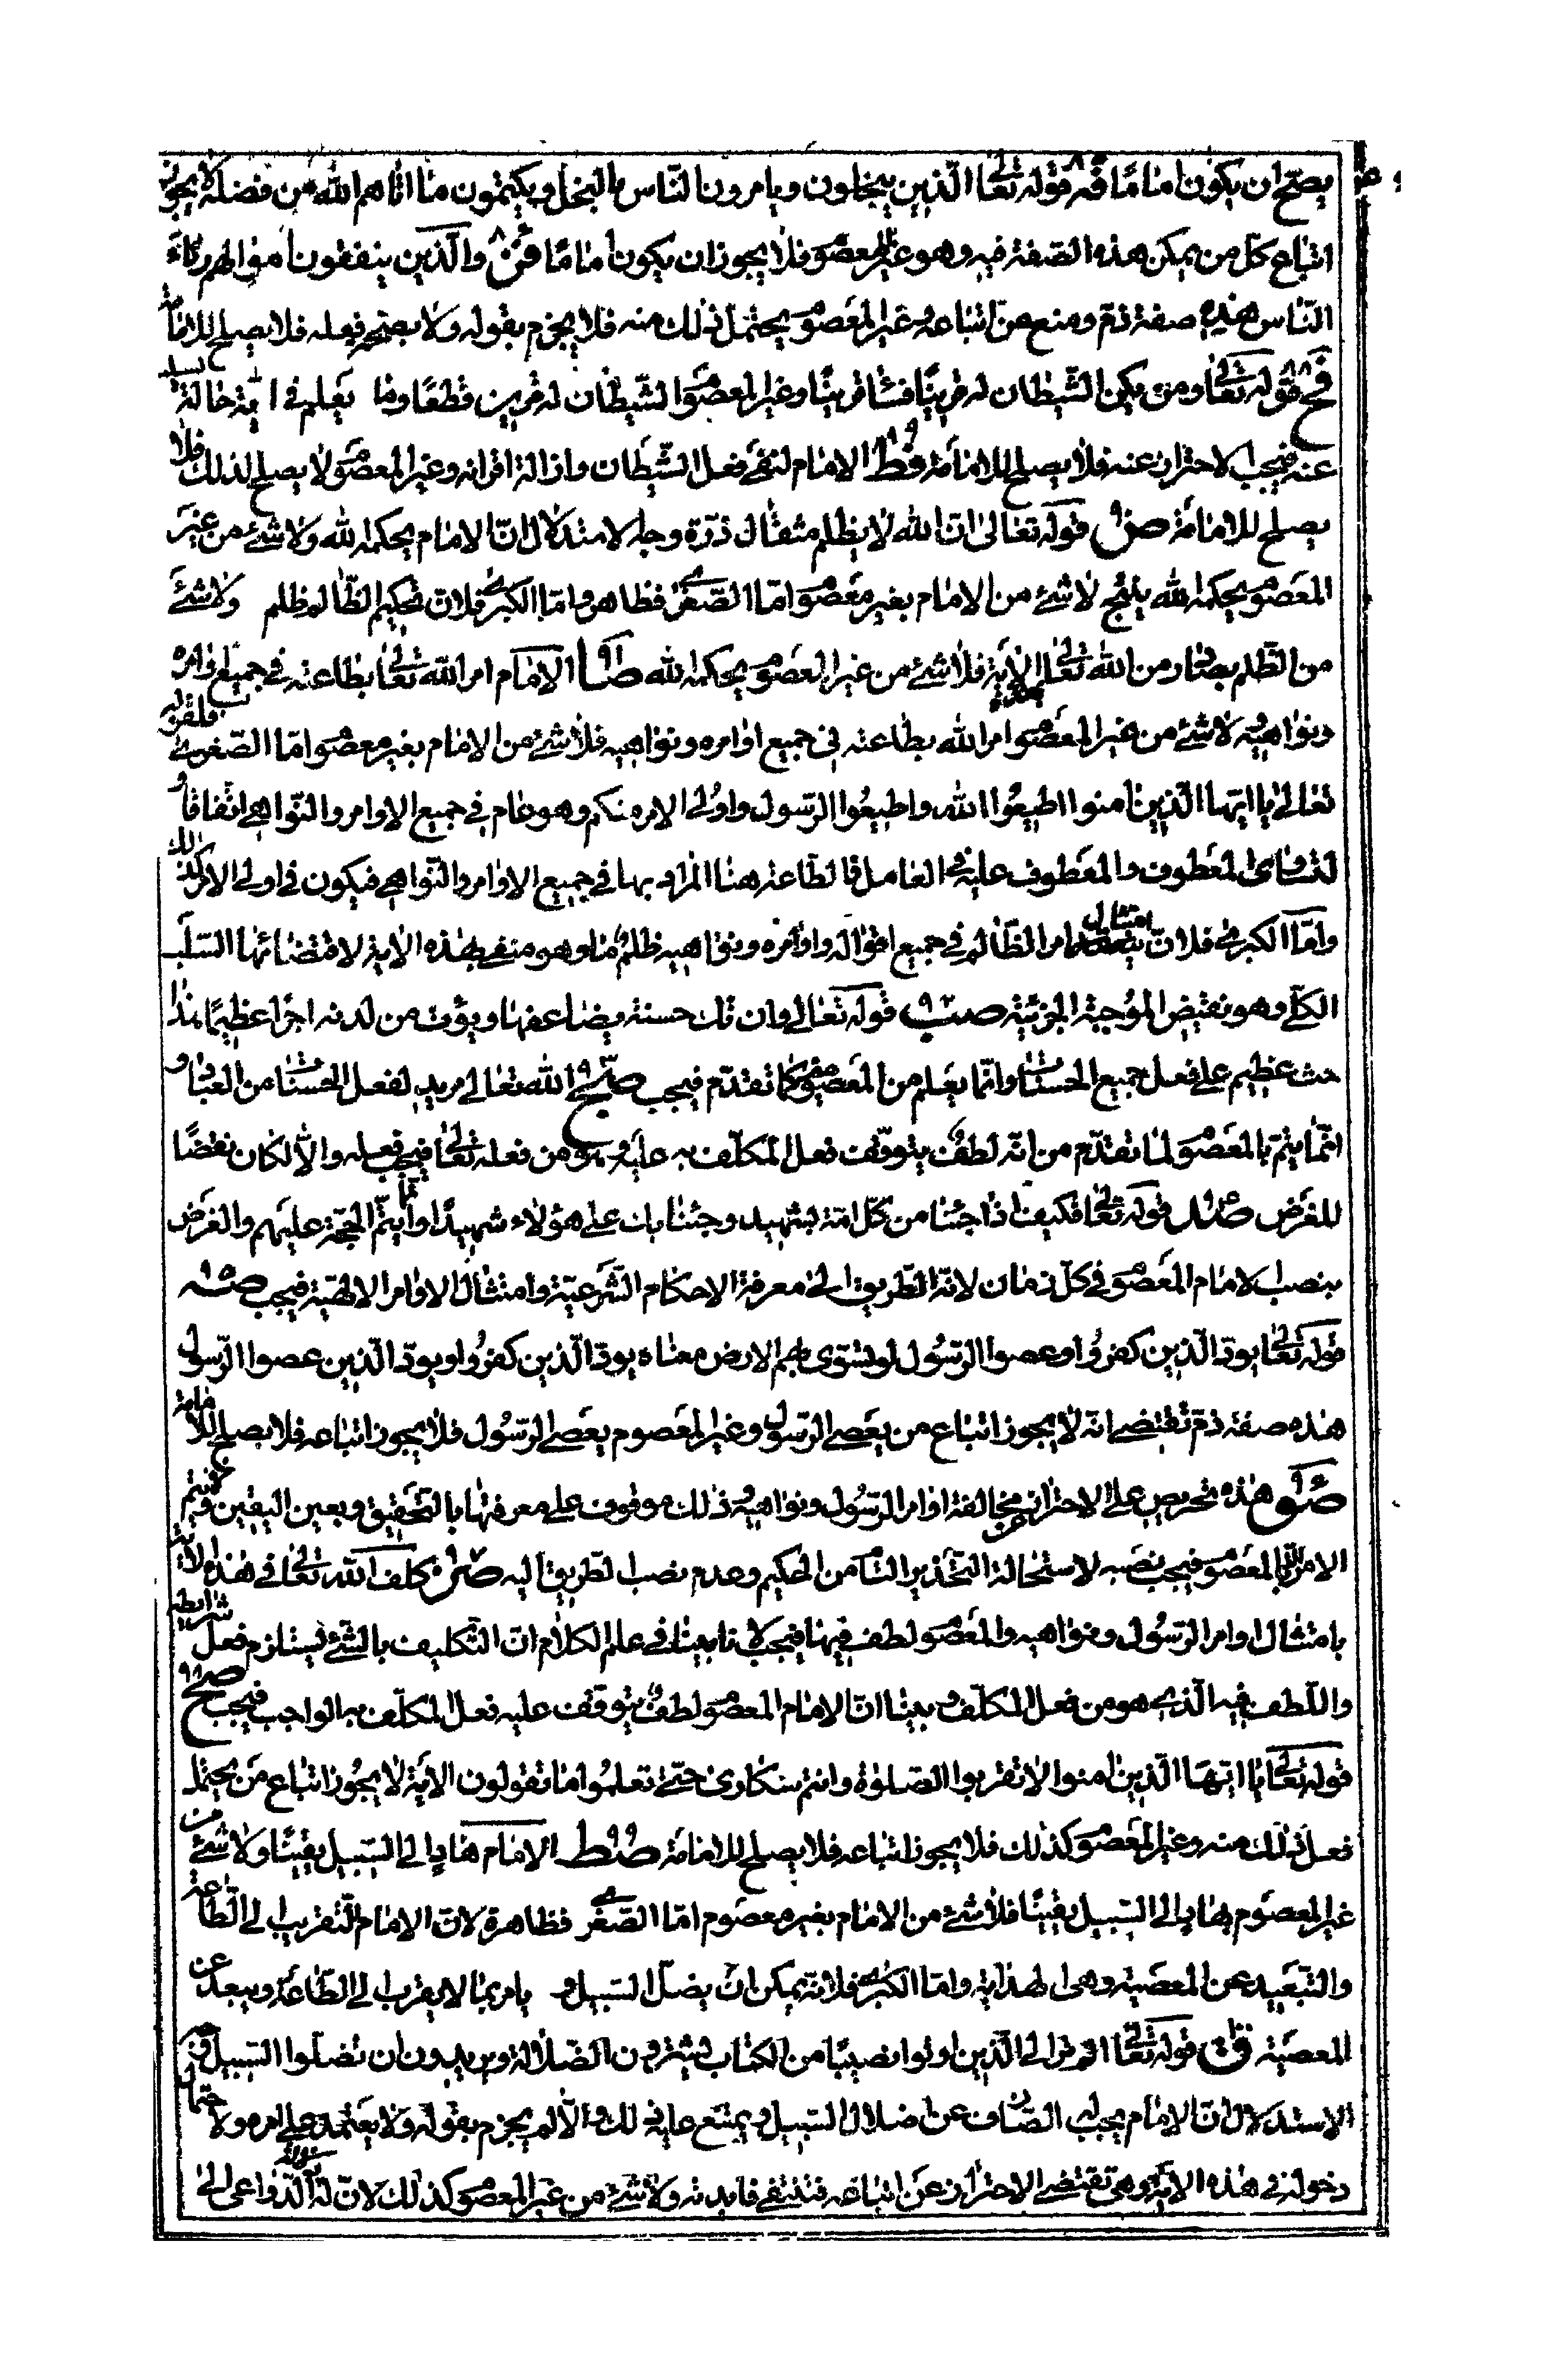 يصحّ ان يكون امامًا فز قوله تعالى الّذين يبخلون ويامرون النّاس بالبخل ويكتمون ما اتاهم الله من فضله لا يجوز
اتباع كلّ من يمكن هذه الصّفة فيه وهو غير المعصوم فلا يجوز ان يكون امامًا فح والّذين ينفقون اموالهم رئاء
النّاس هذه صفة ذمّ ومنع من اتباعه وغير المعصوم يحتمل ذلك منه فلا يجزم بقوله ولا بصحّة فعله فلا يصلح للامامة
قوله تعالى ومن يكن الشّيطان له قرينًا فساء قرينًا وغير المعصوم الشّيطان له قرين قطعًا وما يعلم في اية حالة يسلم
عنه فيجب الاحتراز عنه فلا يصلح للامامة فط الامام لنفى فعل الشّيطان وازالة اقرانه وغير المعصوم لا يصلح لذلك فلا
يصلح للامامة ص قوله تعالى انّ الله لا يظلم مثقال ذرّة وجه الاستدلال انّ الامام يحكمه الله ولا شئ من غير
المعصوم يحكمه الله ينتج لا شئ من الامام بغير معصوم امّا الصّغرى فظاهرة وامّا الكبرى فلانّ تحكيم الظّالم ظلم ولا شئ
من الظّلم بصادر من الله تعالى الاية فلا شئ من غير المعصوم يحكمه الله صا الامام امر الله تعالى بطاعته في جميع اوامره
ونواهيه لا شئ من غير المعصوم امر الله بطاعته في جميع اوامره ونواهيه فلا شئ من الامام بغير معصوم امّا الصّغرى فلقوله
تعالى يا ايّها الّذين امنوا اطيعُوا الله واطيعُوا الرّسول واولى الامر منكم وهو عام في جميع الاوامر والنّواهى اتفاقا و
لتساوى المعطوف والمعطوف عليه في العامل فالطّاعة هنا المراد بها في جميع الاوامر والنّواهى فيكون في اولى الامر كذلك
وامّا الكبرى فلانّ امتثال امر الظّالم في جميع اقواله واوامره ونواهيه ظلم ما وهو منفى بهذه الاية لاقتضائها السّلب
الكلّى وهو نقيض الموجبة الجزئيّة صب قوله تعالى وان تك حسنة يضاعفها ويؤت من لدنه اجرًا عظيمًا هذا
حث عظيم على فعل جميع الحسنات وانّما يعلم من المعصوم كما تقدّم فيجب صج الله تعالى مريد لفعل الحسنات من العباد و
انّما يتم بالمعصوم لما تقدّم من انّه لطف يتوقّف فعل المكلّف به عليه وهو من فعله تعالى فيجب فعله والّا لكان نقضًا
للغرض صد قوله تعالى فكيف اذا جئنا من كلّ امّة بشهيد وجئنا بك على هؤلاء شهيدًا وانّما يتمّ الحجّة عليهم والغرض
بنصب الامام المعصوم في كلّ زمان لانّه الطّريق الى معرفة الاحكام الشّرعيّة وامتثال الاوامر الالهيّة فيجب صه
قوله تعالى يودّ الّذين كفروا وعصوا الرّسُول لو تسوّى بهم الارض معناه يودّ الّذين كفرُوا ويودّ الّذين عصوا الرّسول
هذه صفة ذمّ تقتضى انّه لا يجوز اتباع من يعصى الرّسول وغير المعصوم يعصى الرّسُول فلا يجوز اتباعه فلا يصلح للامامة
صو هذه تحريص على الاحتراز عن مخالفة اوامر الرّسول ونواهيه وذلك موقوف على معرفتها بالتّحقيق وبعين اليقين ولا يتم
الامر الّا بالمعصوم فيجب نصبه لاستحالة التّحذير التّام من الحكيم وعدم نصب الطّريق اليه صز كلّف الله تعالى في هذه الاية
بامتثال اوامر الرّسُول ونواهيه والمعصوم لطف فيها فيجب لانا بيّنا في علم الكلام انّ التّكليف بالشّئ يستلزم فعل شرايطه
واللّطف فيه الّذى هو من فعل المكلّف وبيّنا انّ الامام المعصوم لطف يتوقّف عليه فعل المكلّف به الواجب فيجب صح
قوله تعالى يا ايّها الّذين امنوا لا تقربوا الصّلوة وانتم سكارى حتّى تعلمُوا ما تقولون الاية لا يجُوز اتباع من يحتمل
فعل ذلك منه وغير المعصوم كذلك فلا يجوز اتباعه فلا يصلح للامامة صط الامام هاد الى السّبيل يقينًا ولا شئ من
غير المعصوم بهاد الى السّبيل يقينًا فلا شئ من الامام بغير معصوم امّا الصّغرى فظاهرة لانّ الامام للتّقريب الى الطّاعة
والتّبعيد عن المعصية وهى الهداية وامّا الكبرى فلانّه يمكن ان يضلّ السّبيل و يامر بما لا يقرب الى الطّاعة ويبعد عن
المعصية ق قوله تعالى الم تر الى الّذين اوتوا نصيبًا من الكتاب يشترون الضّلالة ويريدون ان تضلّوا السّبيل
الاستدلال انّ الامام يجب له الصّارف عن اضلال السّبيل ويمتنع عليه ذلك والّا لم يجزم بقوله ولا يعتمد على امره ولاحتمال
دخوله في هذه الاية وهى تقتضى الاحتراز عن اتباعه فتنتفى فايدته ولا شئ من غير المعصوم كذلك لانّ له الدّواعى الى